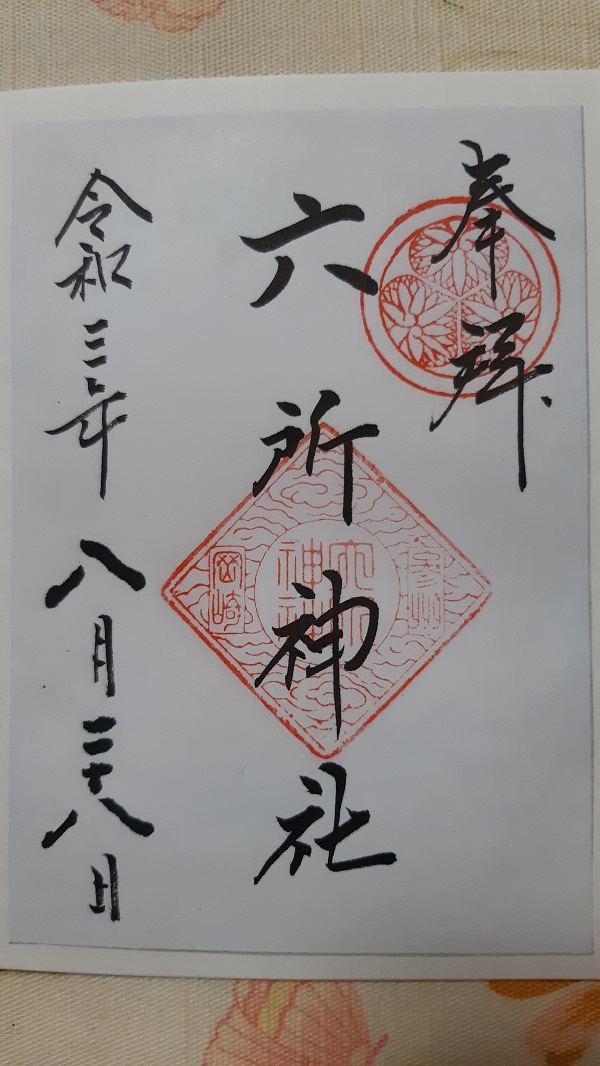 奉拝
六所神社
令和三年八月二十八日
参州
六所神社
岡崎